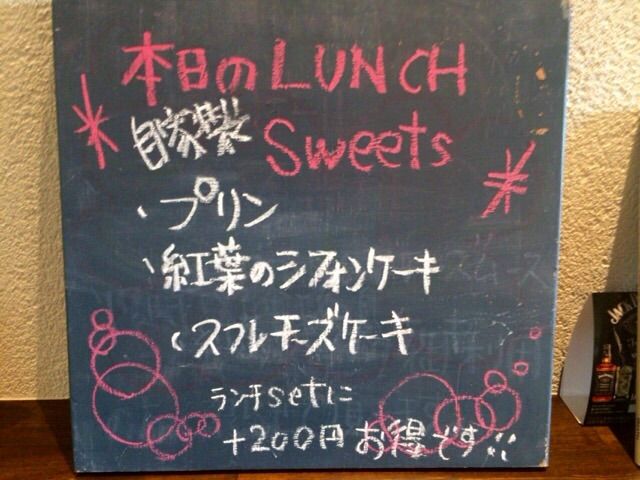 本日のLUNCH
自家製 Sweets
・プリン
・紅葉のシフォンケーキ
・スフレチーズケーキ
ランチsetに
+200円 お得です!!